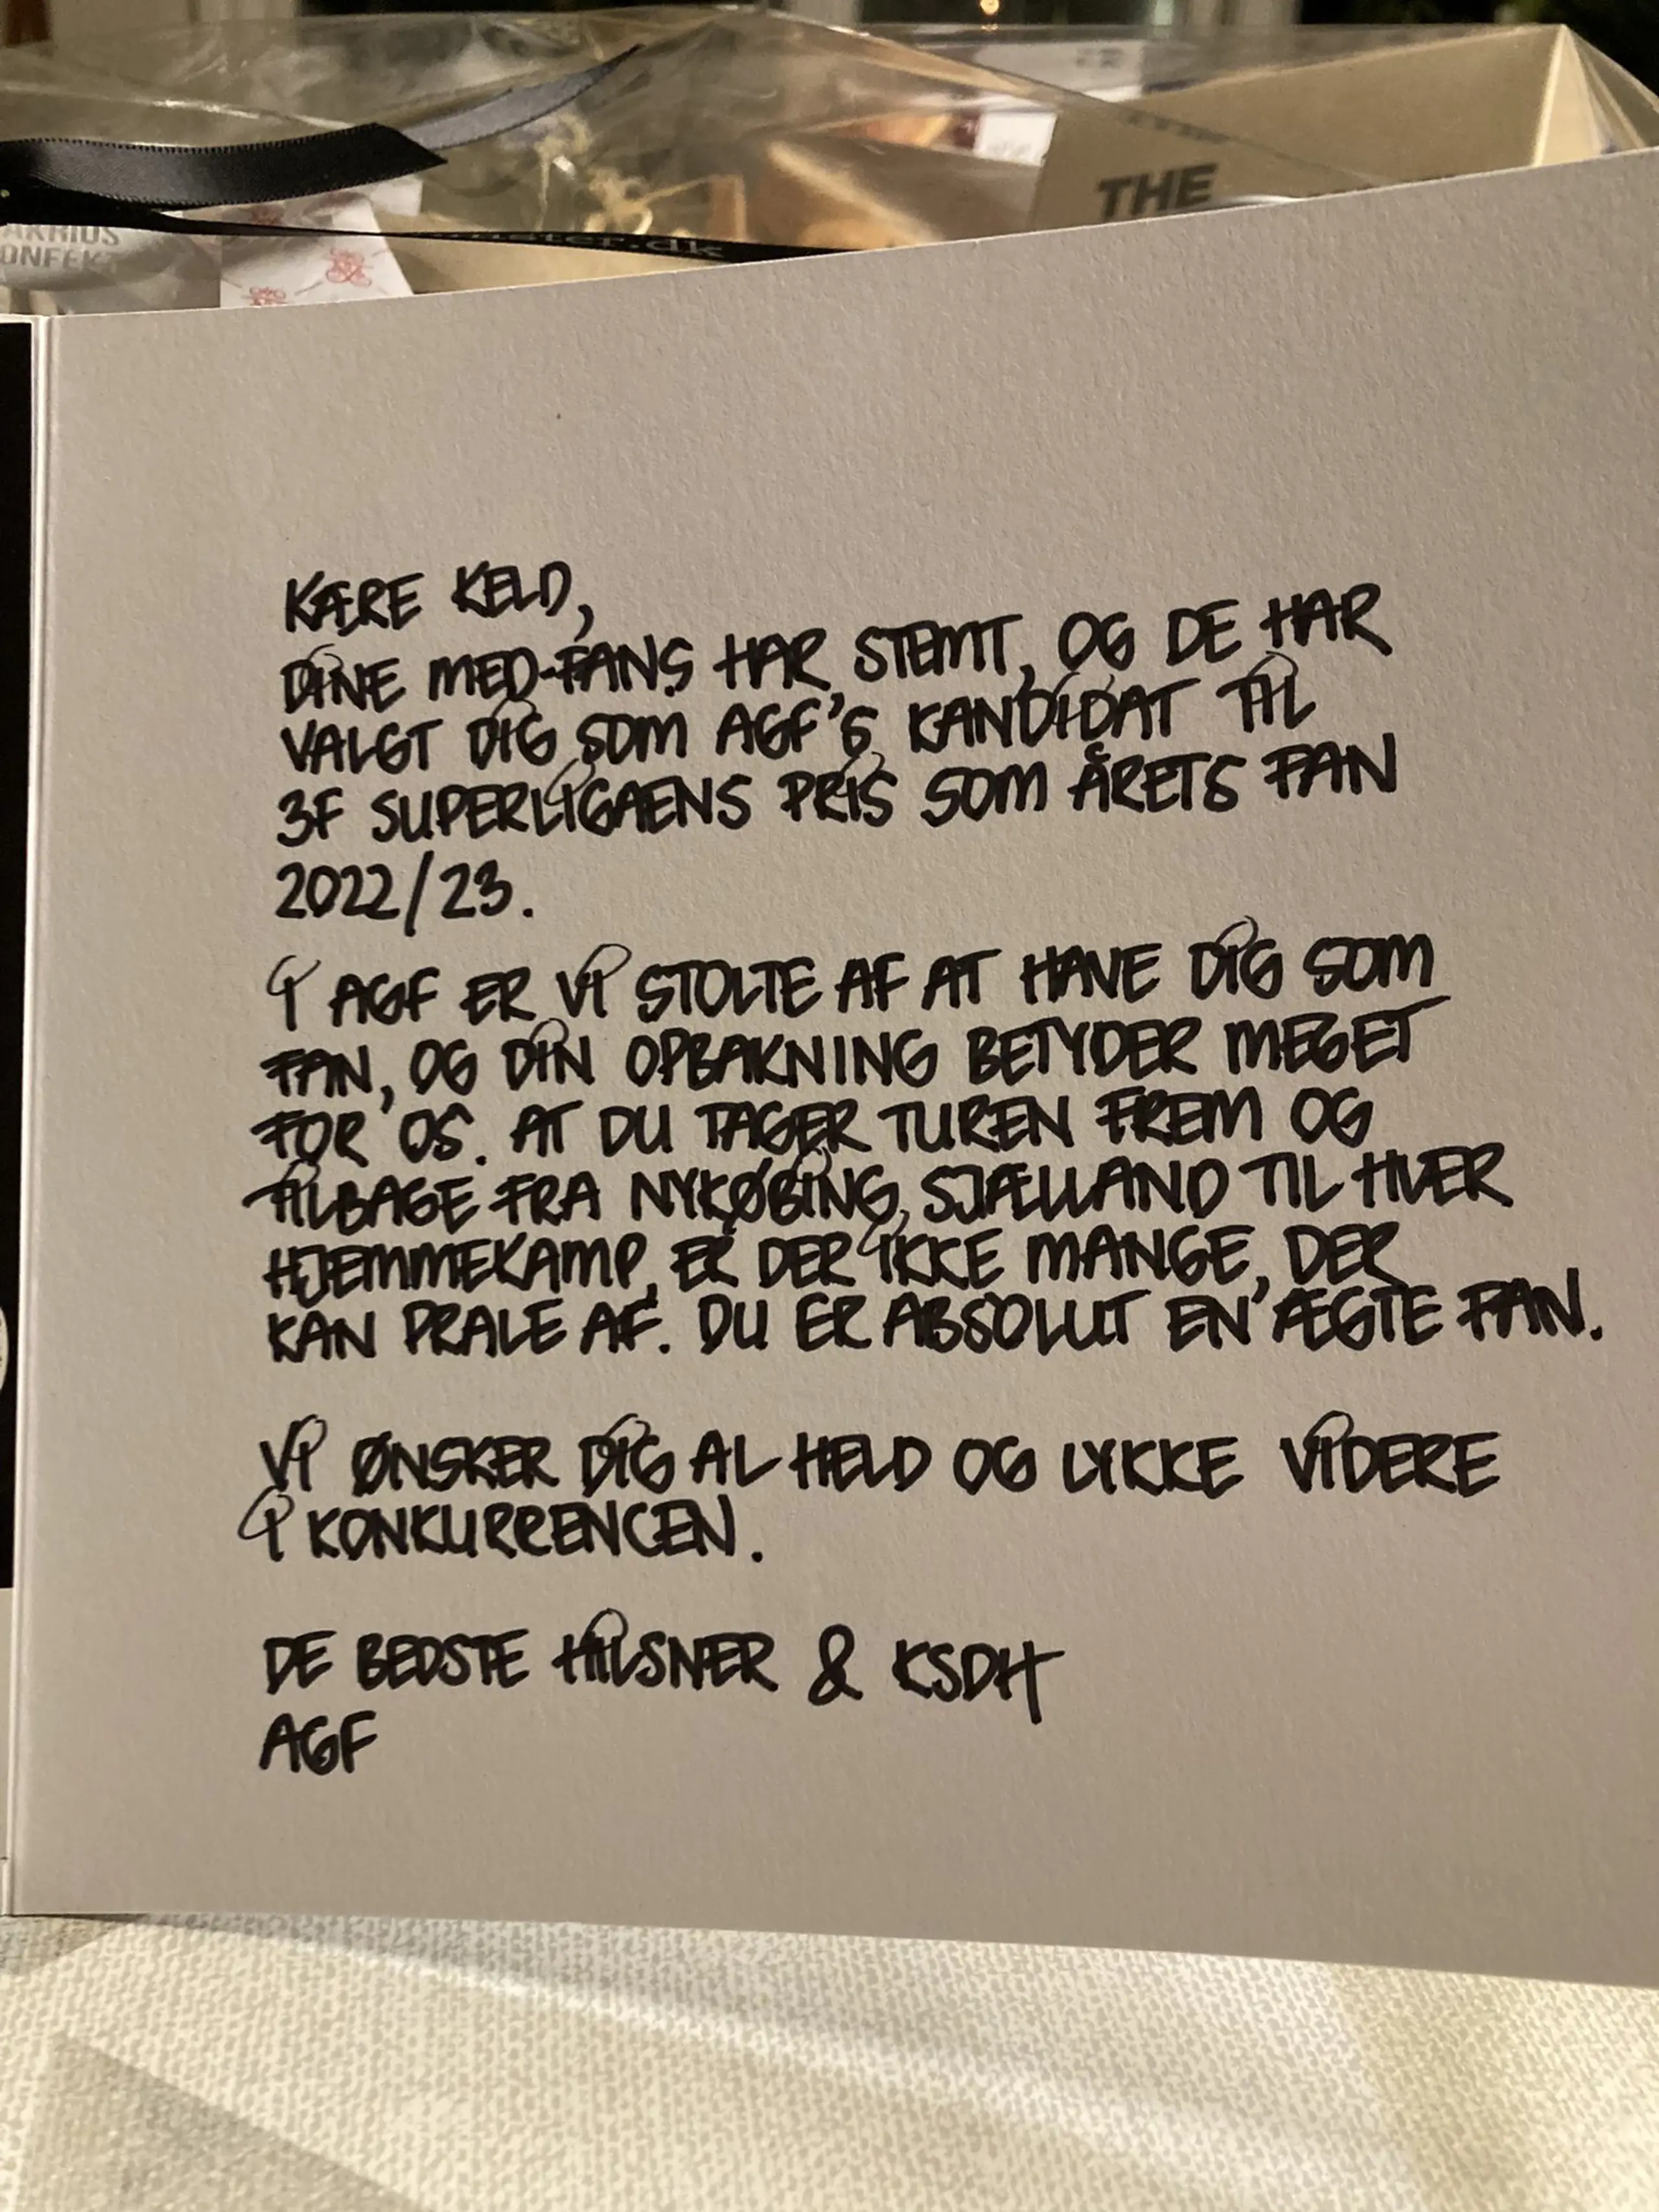 THE
AKRIDS
ONFEK
mester.dk
KÆRE KELD,
DINE MED-FANS HAR STEMT, OG DE HAR
VALGT DIG SOM AGF'S KANDIDAT TIL
3F SUPERLIGAENS PRIS SOM ÅRETS FAN
2022/23.
I AGF ER VI STOLTE AF AT HAVE DIG SOM
FAN, OG DIN OPBAKNING BETYDER MEGET
FOR OS. AT DU TAGER TUREN FREM OG
TILBAGE FRA NYKØBING, SJÆLLAND TIL HVER
HJEMMEKAMP, ER DER IKKE MANGE, DER
KAN PRALE AF. DU ER ABSOLUT EN ÆGTE FAN.
VI ØNSKER DIG AL HELD OG LYKKE VIDERE
I KONKURRENCEN.
DE BEDSTE HILSNER & KSDH
AGF